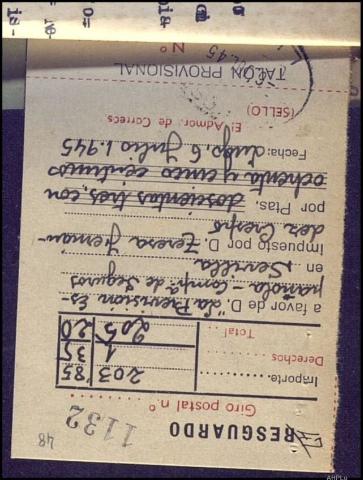 48
1132
RESGUARDO
Giro postal n.º
Importe. 203 85
Derechos 1 35
Total 205 20
a favor de D. "La Previsión Es-
pañola - Compª de Seguros
en Sevilla.
Impuesto por D. Teresa Fernán-
dez Crespo
por Ptas. doscientas tres, con
ochenta y cinco céntimos
Fecha: Lugo, 6 Julio 1.945
El Admor. de Correos
(SELLO)
TALÓN PROVISIONAL
N.º
AHPLu